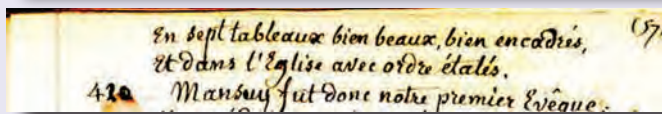 En sept tableaux bien beaux, bien encadrés, (57
Et dans l'Eglise avec ordre étalés.
420 Mansuy fut donc notre premier Evêque;